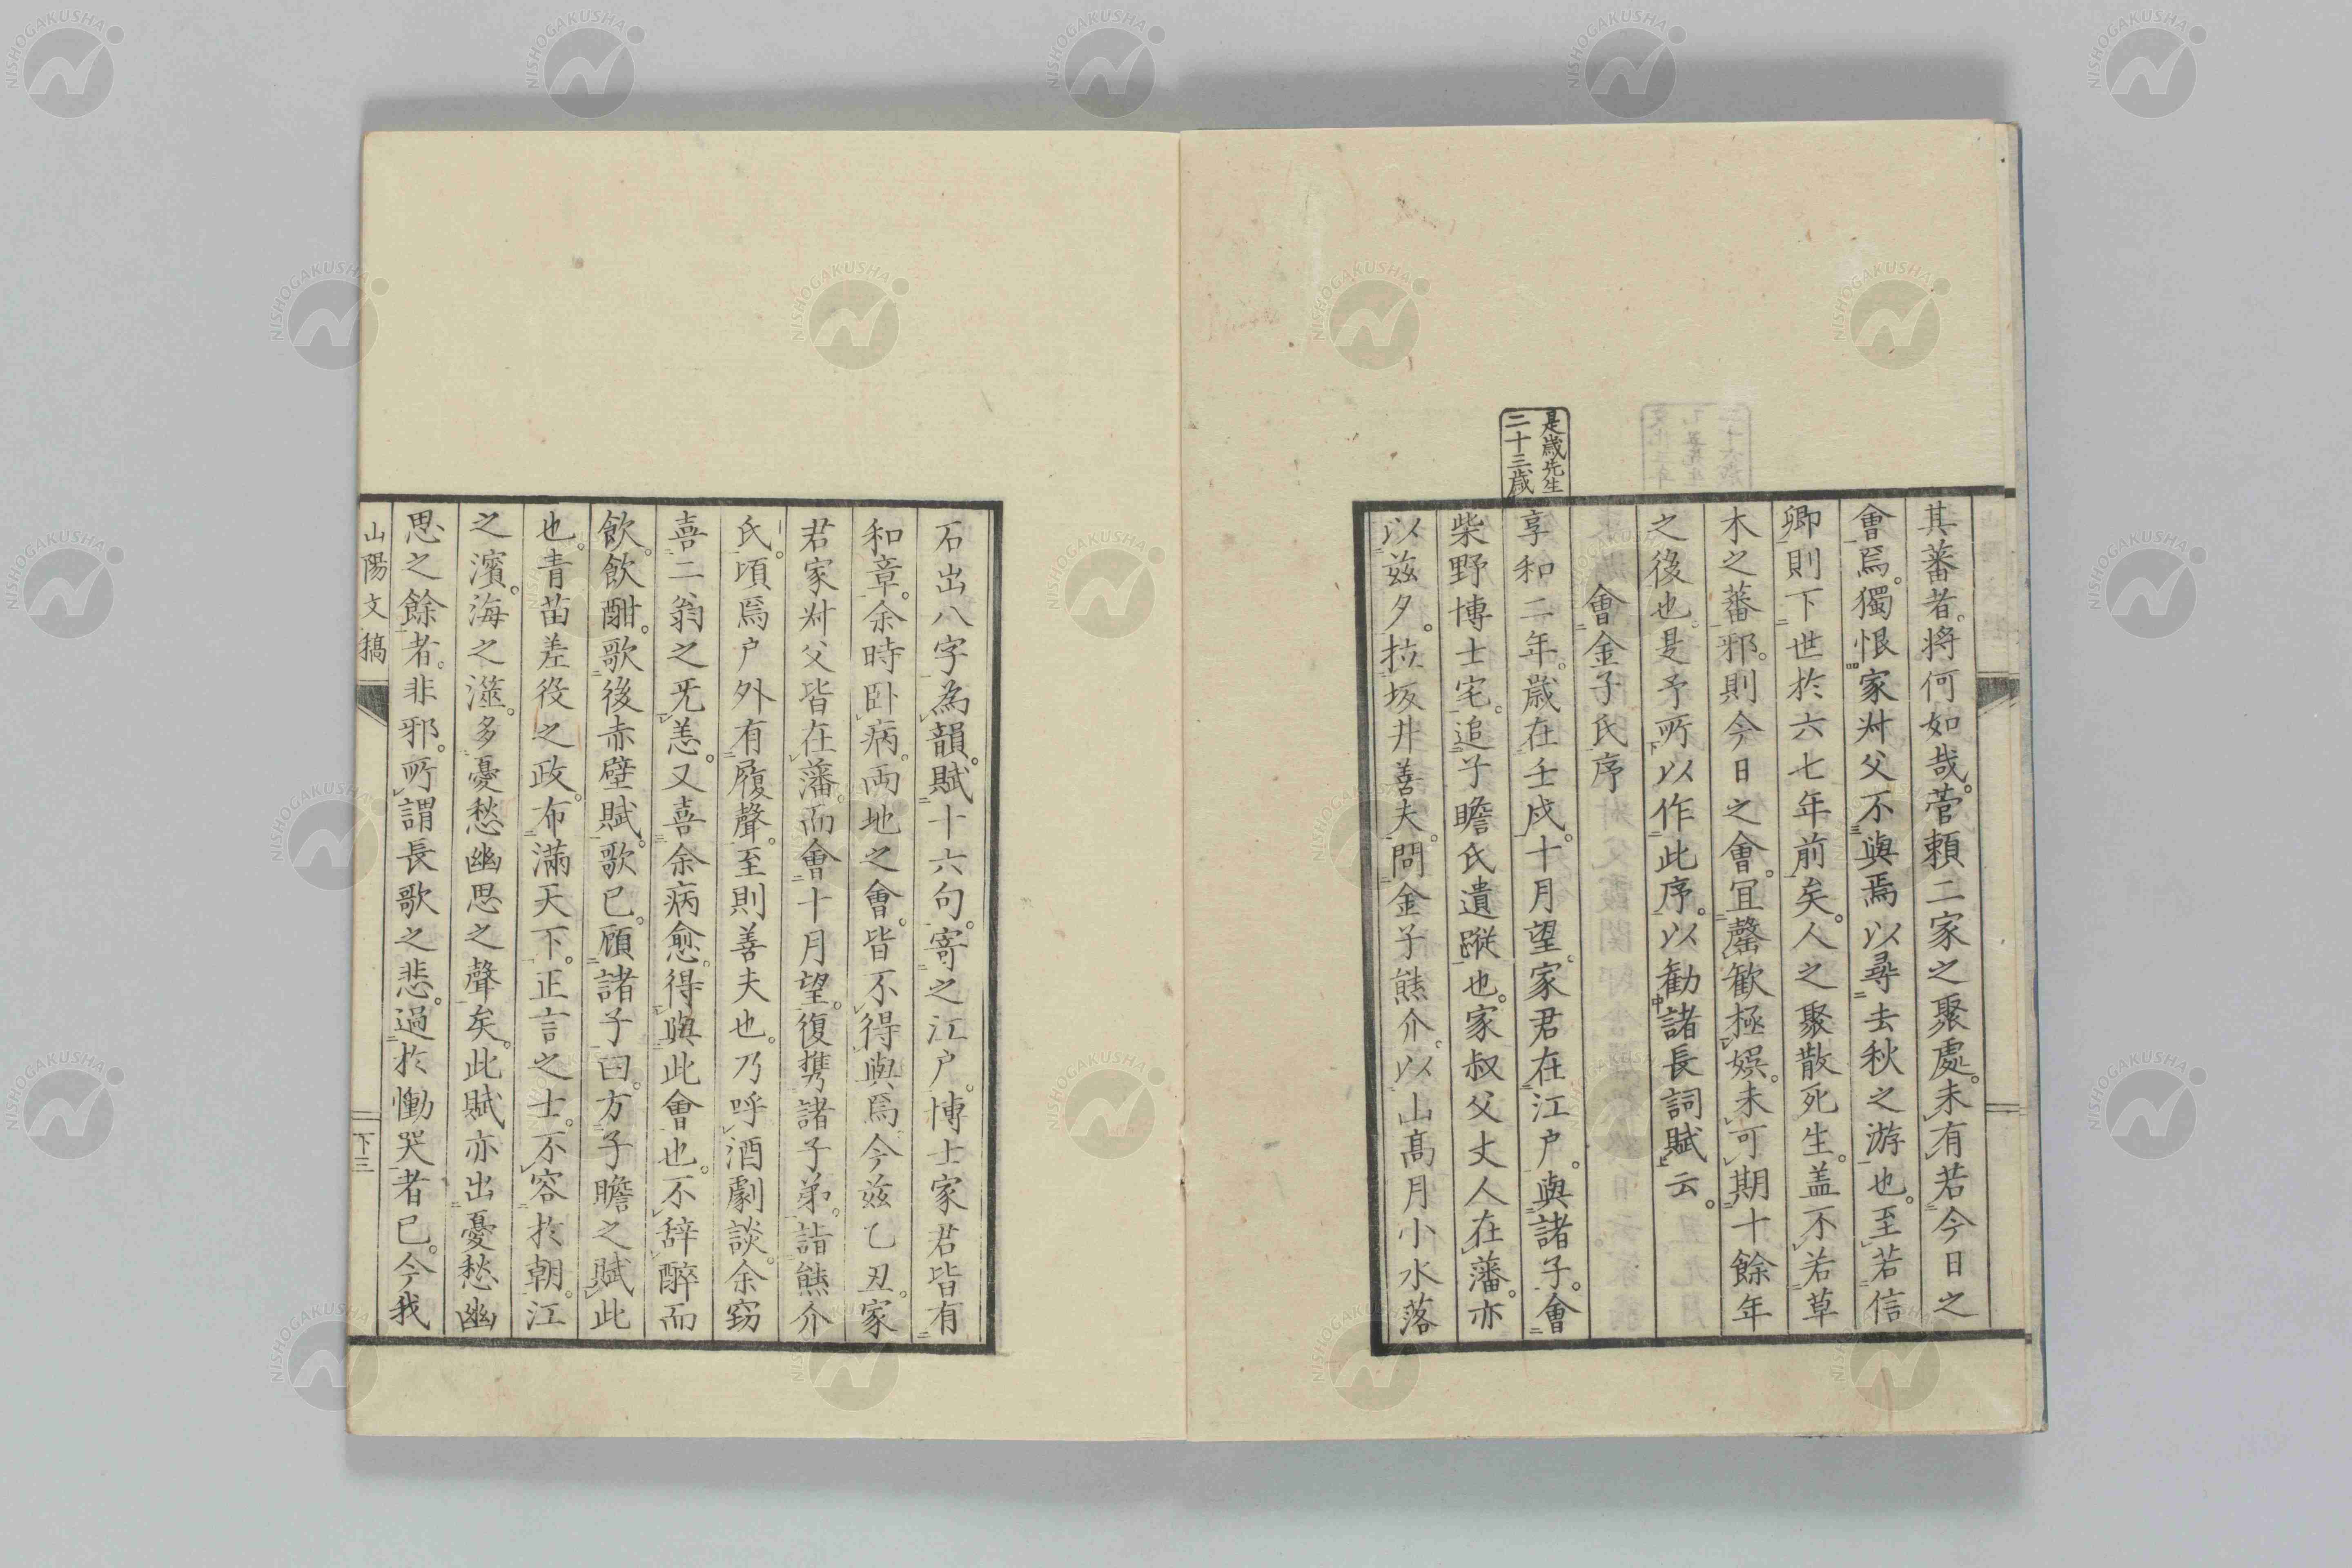 其蕃者。將何如哉。菅賴二家之聚處。未有若今日之
會焉。獨恨家叔父不與焉以尋去秋之游也。至若信
卿則下世於六七年前矣。人之聚散死生。盖不若草
木之蕃邪。則今日之會。宜罄歡極娯。未可期十餘年
之後也是予所以作此序。以勧諸長詞賦云。
會金子氏序
是歲先生
二十三歲
享和二年。歲在壬戌。十月望。家君在江戶。與諸子。會
柴野博士宅。追子瞻氏遺蹤也。家叔父丈人在藩。亦
以茲夕。拉坂井善夫。問金子熊介。以山高月小水落
石出八字為韻。賦十六句。寄之江戶。博士家君皆有
和章。余時卧病。兩地之會。皆不得與焉今茲乙丑。家
君家叔父皆在藩。而會十月望。復携諸子弟。詣熊介
氏。頃焉戶外有履聲。至則善夫也。乃呼酒劇談。余窃
喜二翁之旡恙。又喜余病愈。得與此會也。不辞醉而
飲。飲酣。歌後赤壁賦。歌已。顧諸子曰。方子瞻之賦此
也。青苗差役之政。布滿天下。正言之士。不容於朝。江
之濱。海之澨。多憂愁幽思之聲矣。此賦亦出憂愁幽
思之餘者。非邪。所謂長歌之悲。過於慟哭者已。今我
山陽文稿
下三
NISHOGAKUSHA